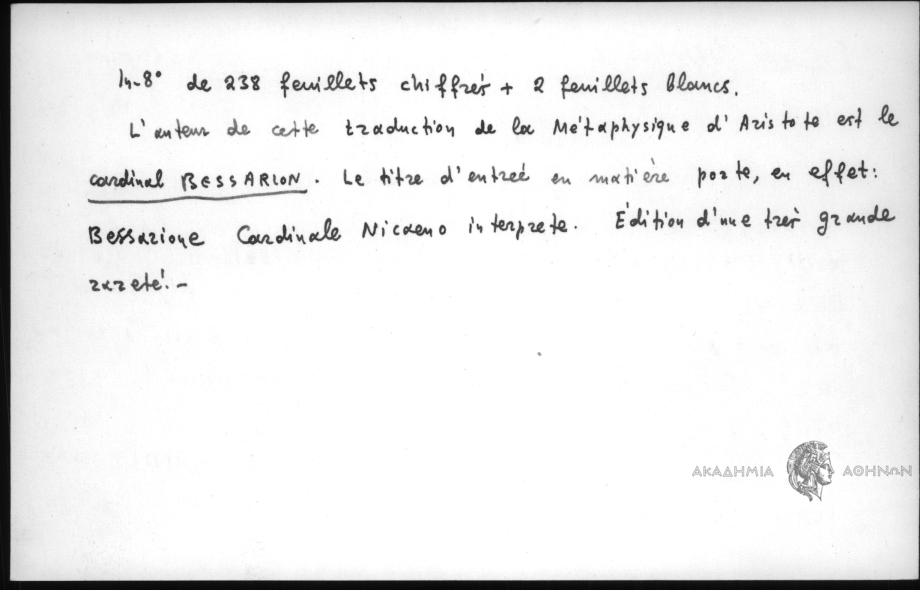 In-8° de 238 feuillets chiffrés + 2 feuillets blancs.
L'auteur de cette traduction de la Métaphysique d'Aristote est le
cardinal BESSARION. Le titre d'entrée en matière porte, en effet:
Bessarione Cardinale Nicaeno interprete. Édition d'une très grande
rareté. -
ΑΚΑΔΗΜΙΑ ΑΘΗΝΩΝ